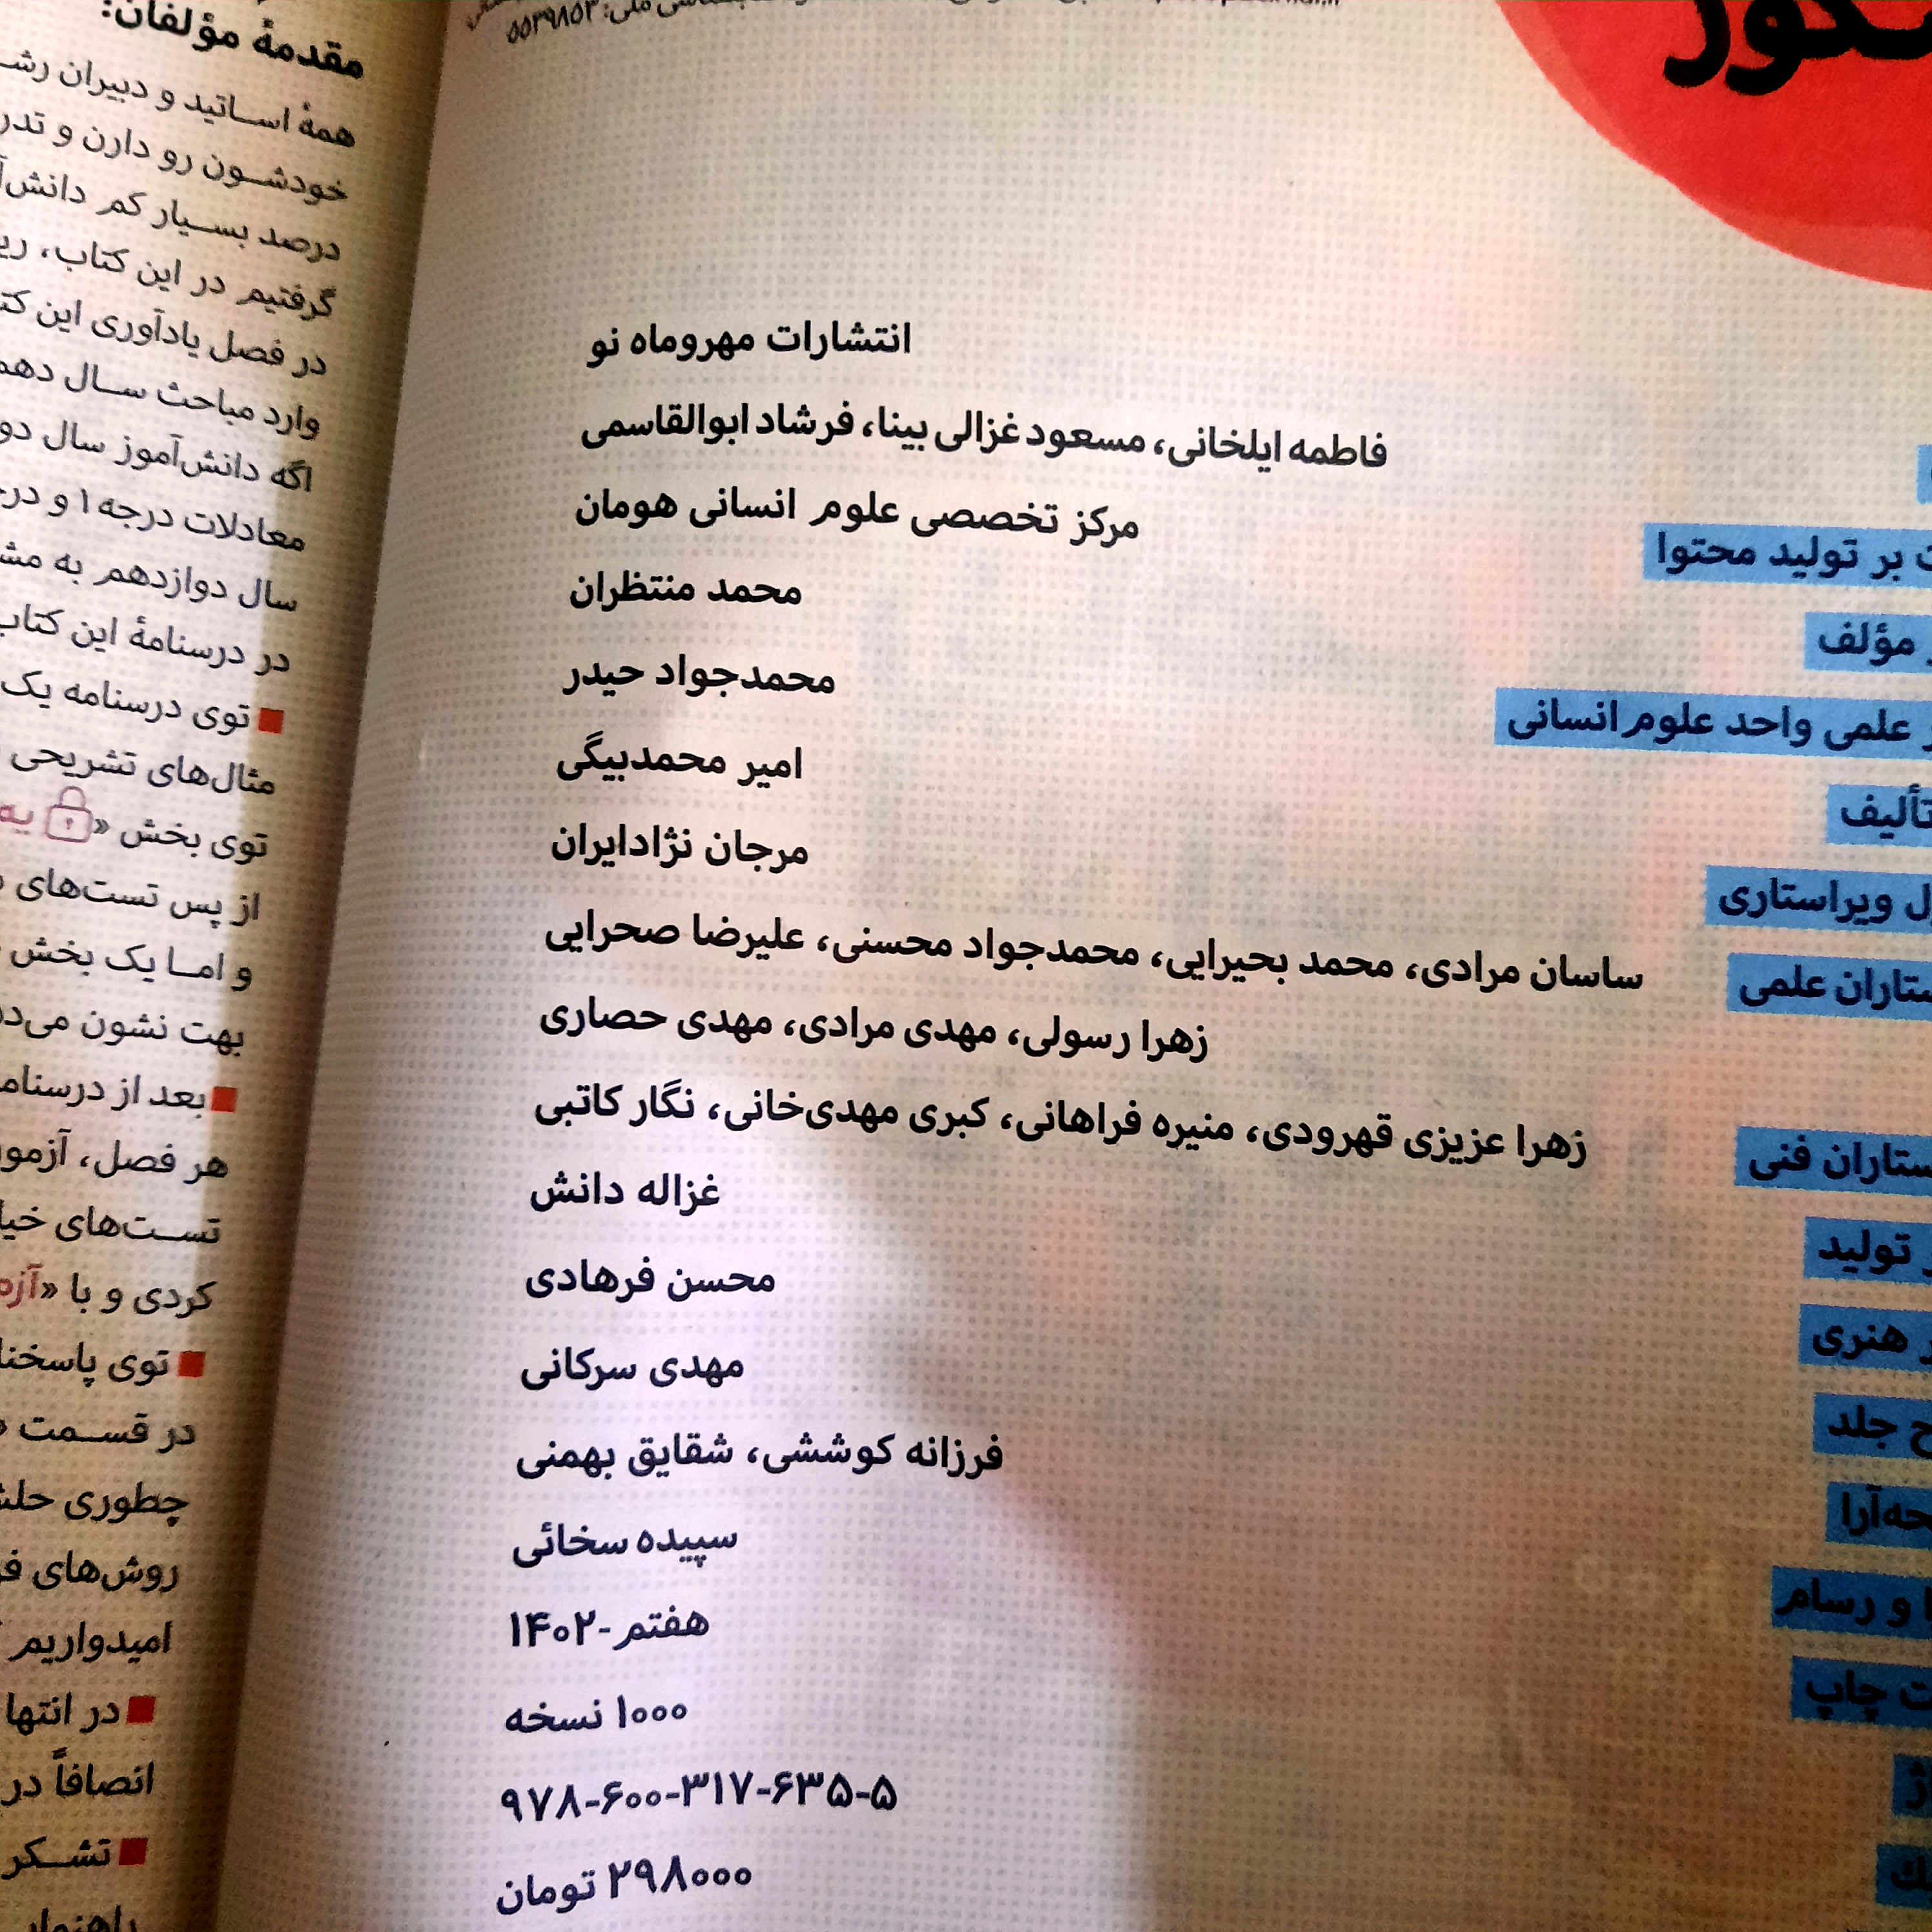 کور
۵۵۳۹۸۵۳
انتشارات مهروماه نو
فاطمه ایلخانی، مسعود غزالی بینا، فرشاد ابوالقاسمی
بر تولید محتوا
مرکز تخصصی علوم انسانی هومان
مؤلف
محمد منتظران
علمی واحد علوم انسانی
محمدجواد حیدر
تألیف
امیر محمدبیگی
ویراستاری
مرجان نژادایران
ستاران علمی
ساسان مرادی، محمد بحیرایی، محمدجواد محسنی، علیرضا صحرایی
زهرا رسولی، مهدی مرادی، مهدی حصاری
ستاران فنی
زهرا عزیزی قهرودی، منیره فراهانی، کبری مهدی‌خانی، نگار کاتبی
تولید
غزاله دانش
هنری
محسن فرهادی
ح جلد
مهدی سرکانی
حه‌آرا
فرزانه کوششی، شقایق بهمنی
و رسام
سپیده سخائی
ت چاپ
هفتم -۱۴۰۲
۱۰۰۰ نسخه
۹۷۸-۶۰۰-۳۱۷-۶۳۵-۵
۲۹۸۰۰۰ تومان
مقدمهٔ مؤلفان:
همهٔ اساتید و دبیران رشـ
خودشون رو دارن و تدر
درصد بسیار کم دانش‌آ
گرفتیم در این کتاب، ری
در فصل یادآوری این کتـ
وارد مباحث سال دهم
اگه دانش‌آموز سال دو
معادلات درجه ۱ و در
سال دوازدهم به مشـ
در درسنامهٔ این کتاب
توی درسنامه یک
مثال‌های تشریحی
توی بخش «یه
از پس تست‌های
و اما یک بخش
بهت نشون می‌د
بعد از درسنامه
هر فصل، آزمو
تست‌های خیا
کردی و با «آزم
توی پاسخنا
در قسمت «
چطوری حل
روش‌های فر
امیدواریم
در انتها
انصافاً در
تشکر